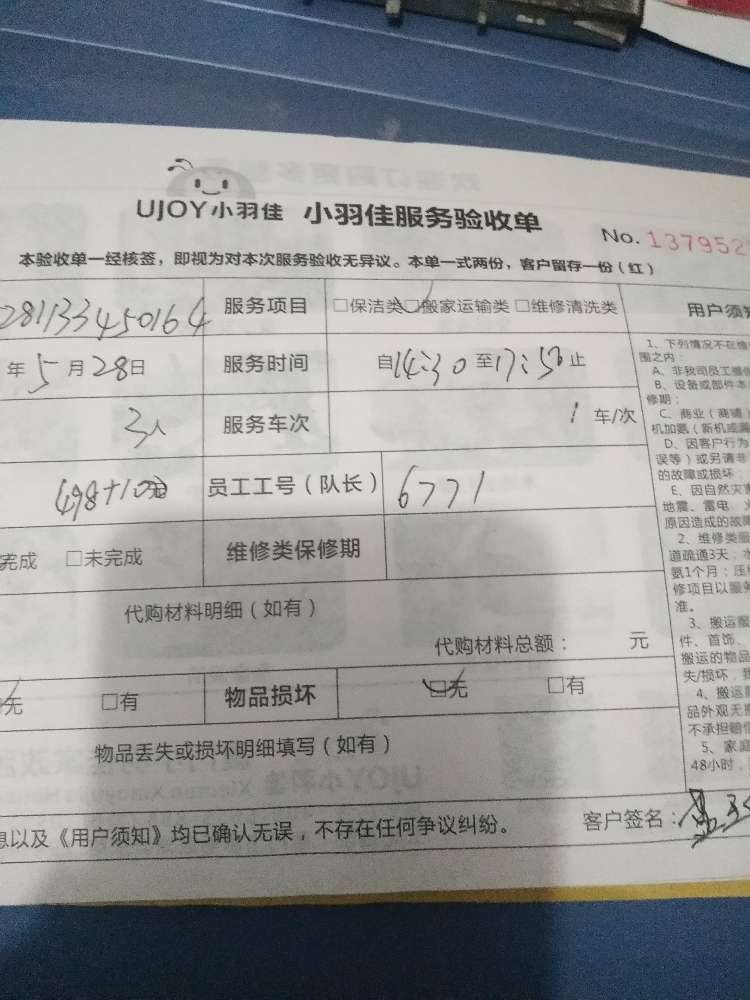 UJOY小羽佳 小羽佳服务验收单
No. 137952
本验收单一经核签，即视为对本次服务验收无异议。本单一式两份，客户留存一份（红）
281133450164 服务项目 □保洁类 □搬家运输类 □维修清洗类
年5月28日 服务时间 自14:30至17:50止
3人 服务车次 1 车/次
498+10 员工工号（队长） 6771
完成 □未完成 维修类保修期
代购材料明细（如有）
代购材料总额： 元
无 □有 物品损坏 □无 □有
物品丢失或损坏明细填写（如有）
以及《用户须知》均已确认无误，不存在任何争议纠纷。
客户签名：
用户须知
1、下列情况不在维
围之内：
A、非我司员工维修
B、设备或部件本
修期；
C、商业（商铺）
机加氨（新机或漏
D、因客户行为
误等）或另请非
的故障或损坏；
E、因自然灾害
地震、雷电、火
原因造成的故障
2、维修类服
道疏通3天；水
氨1个月；压缩
修项目以服务
准。
3、搬运服
件、首饰、
搬运的物品
失/损坏，我
4、搬运服
品外观无损
不承担赔偿
5、家庭
48小时，